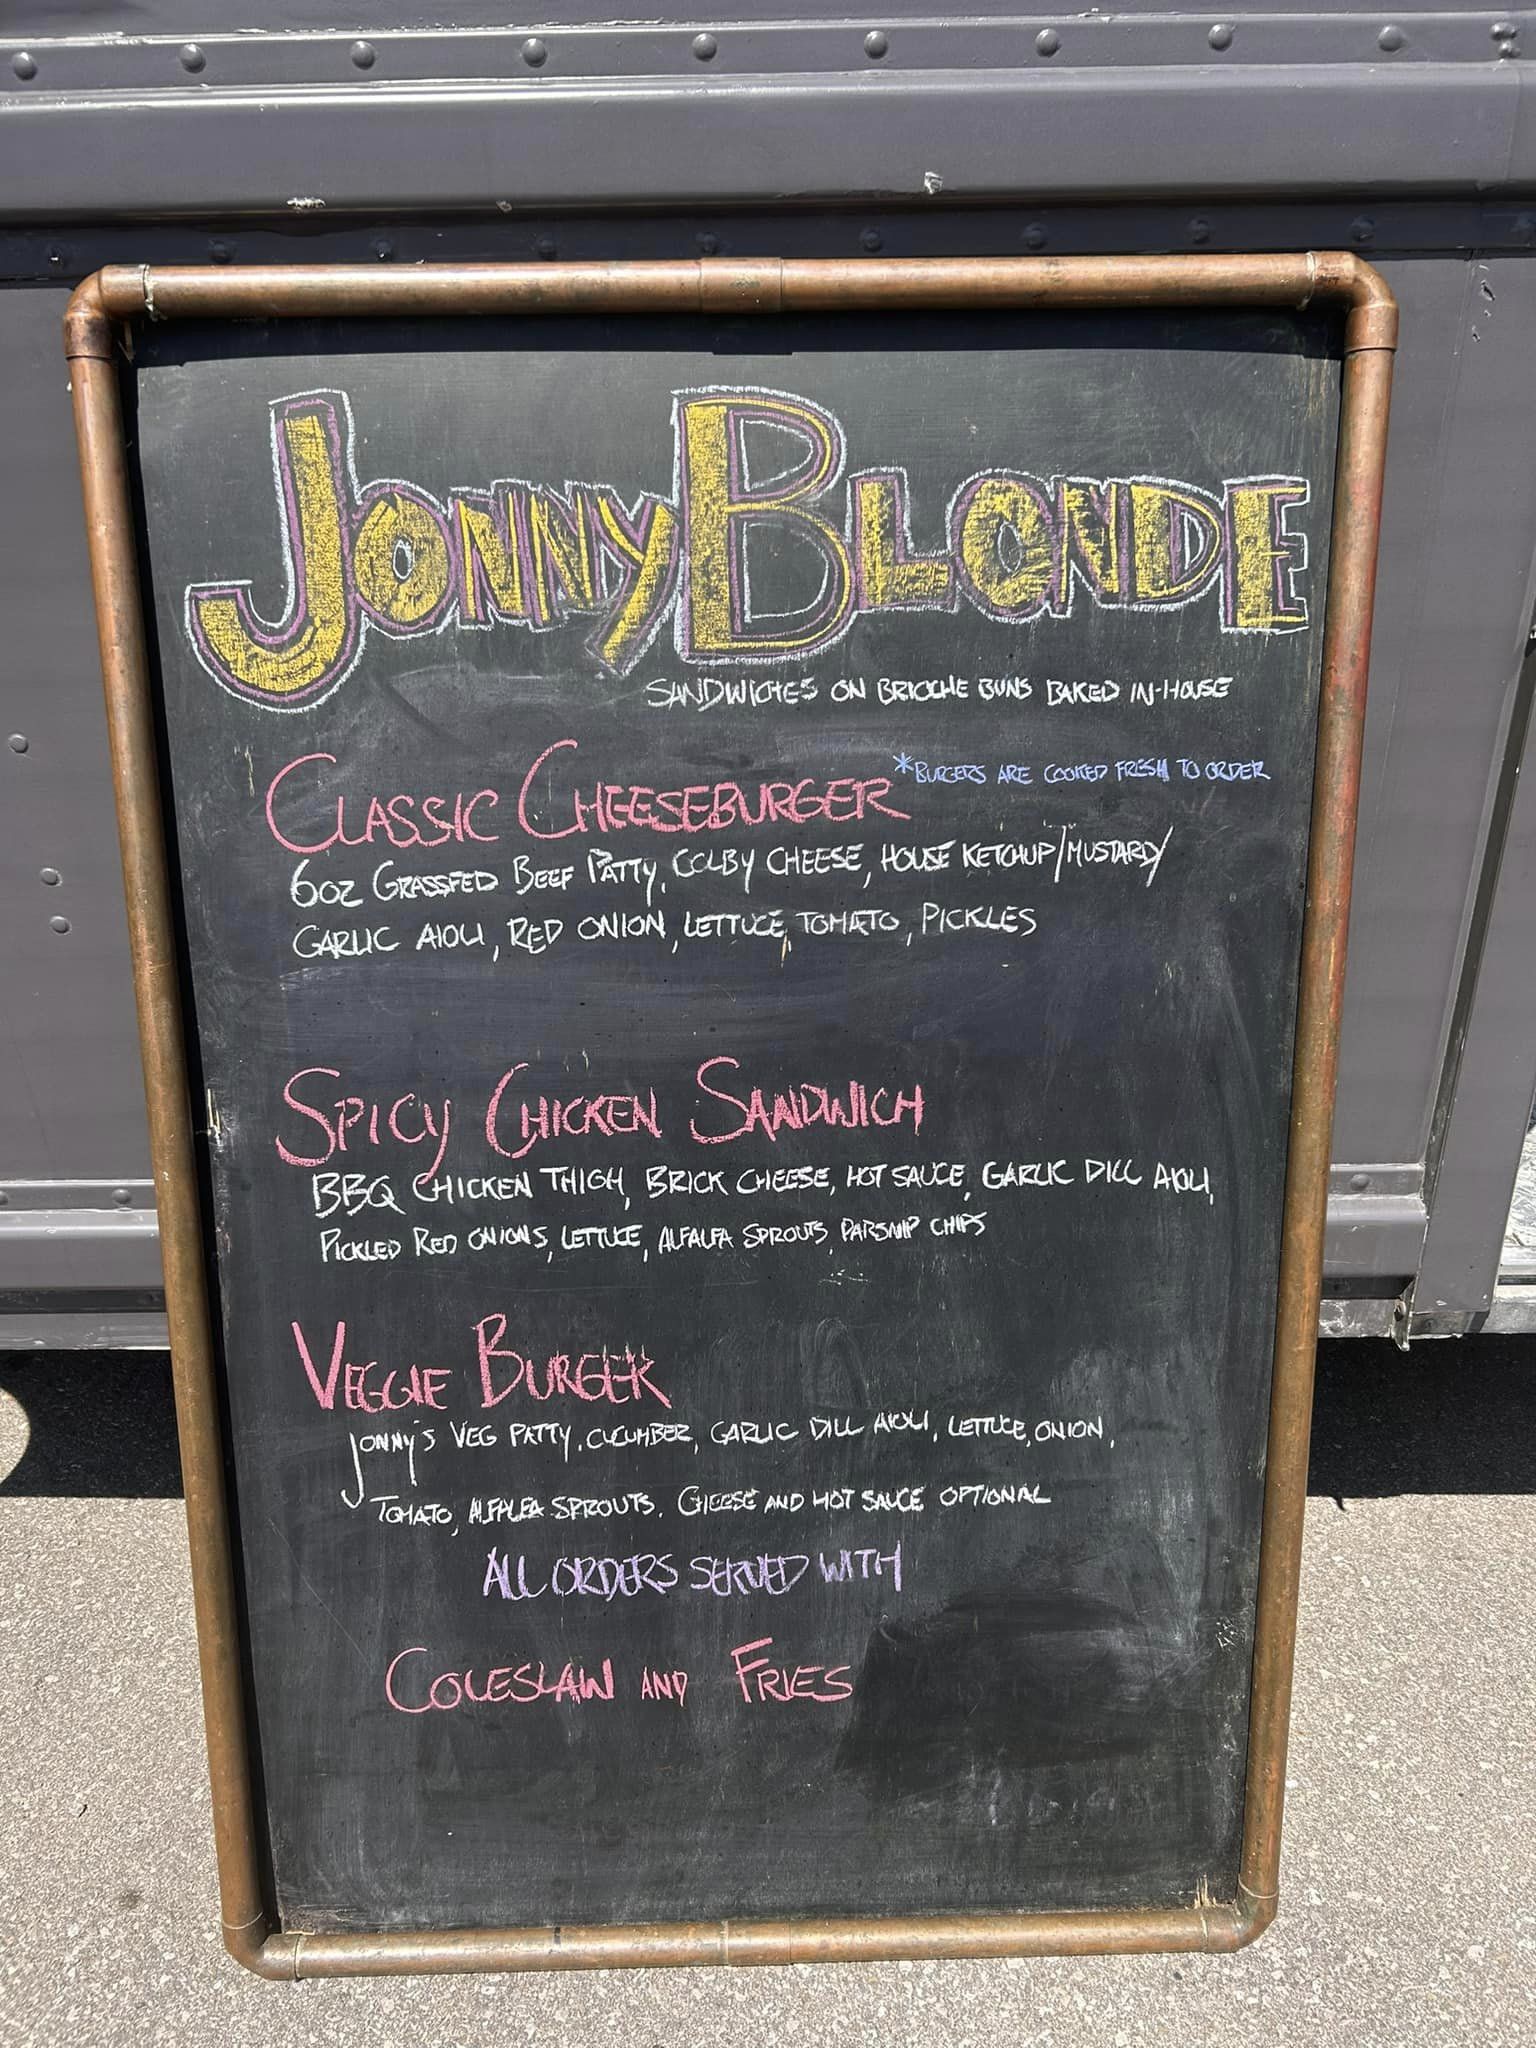 JONNY BLONDE
SANDWICHES ON BRIOCHE BUNS BAKED IN-HOUSE
*BURGERS ARE COOKED FRESH TO ORDER
CLASSIC CHEESEBURGER
6OZ GRASSFED BEEF PATTY, COLBY CHEESE, HOUSE KETCHUP/MUSTARD/
GARLIC AIOLI, RED ONION, LETTUCE, TOMATO, PICKLES
SPICY CHICKEN SANDWICH
BBQ CHICKEN THIGH, BRICK CHEESE, HOT SAUCE, GARLIC DILL AIOLI,
PICKLED RED ONIONS, LETTUCE, ALFALFA SPROUTS, PARSNIP CHIPS
VEGGIE BURGER
JONNY'S VEG PATTY, CUCUMBER, GARLIC DILL AIOLI, LETTUCE, ONION,
TOMATO, ALFALFA SPROUTS. CHEESE AND HOT SAUCE OPTIONAL
ALL ORDERS SERVED WITH
COLESLAW AND FRIES